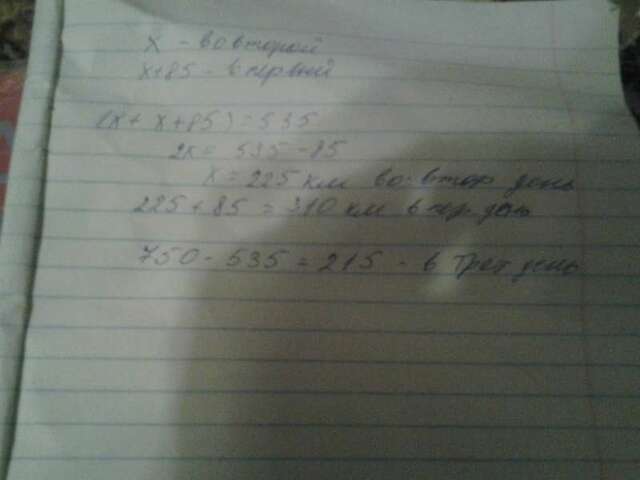 x - во второй
x+85 - в первый
(x + x+85) = 535
2x = 535-85
x = 225 км во втор день
225 + 85 = 310 км в пер. день
750 - 535 = 215 - в трет день